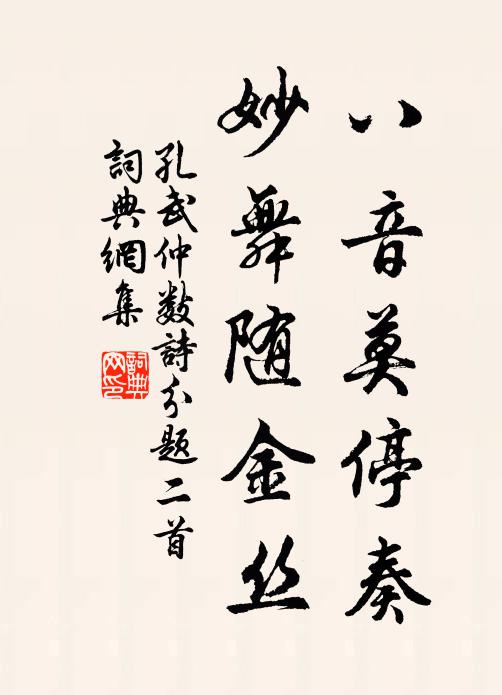 八音莫停奏
妙舞随金丝
孔武仲数詩分题二首
詞典網集
詞典
网印